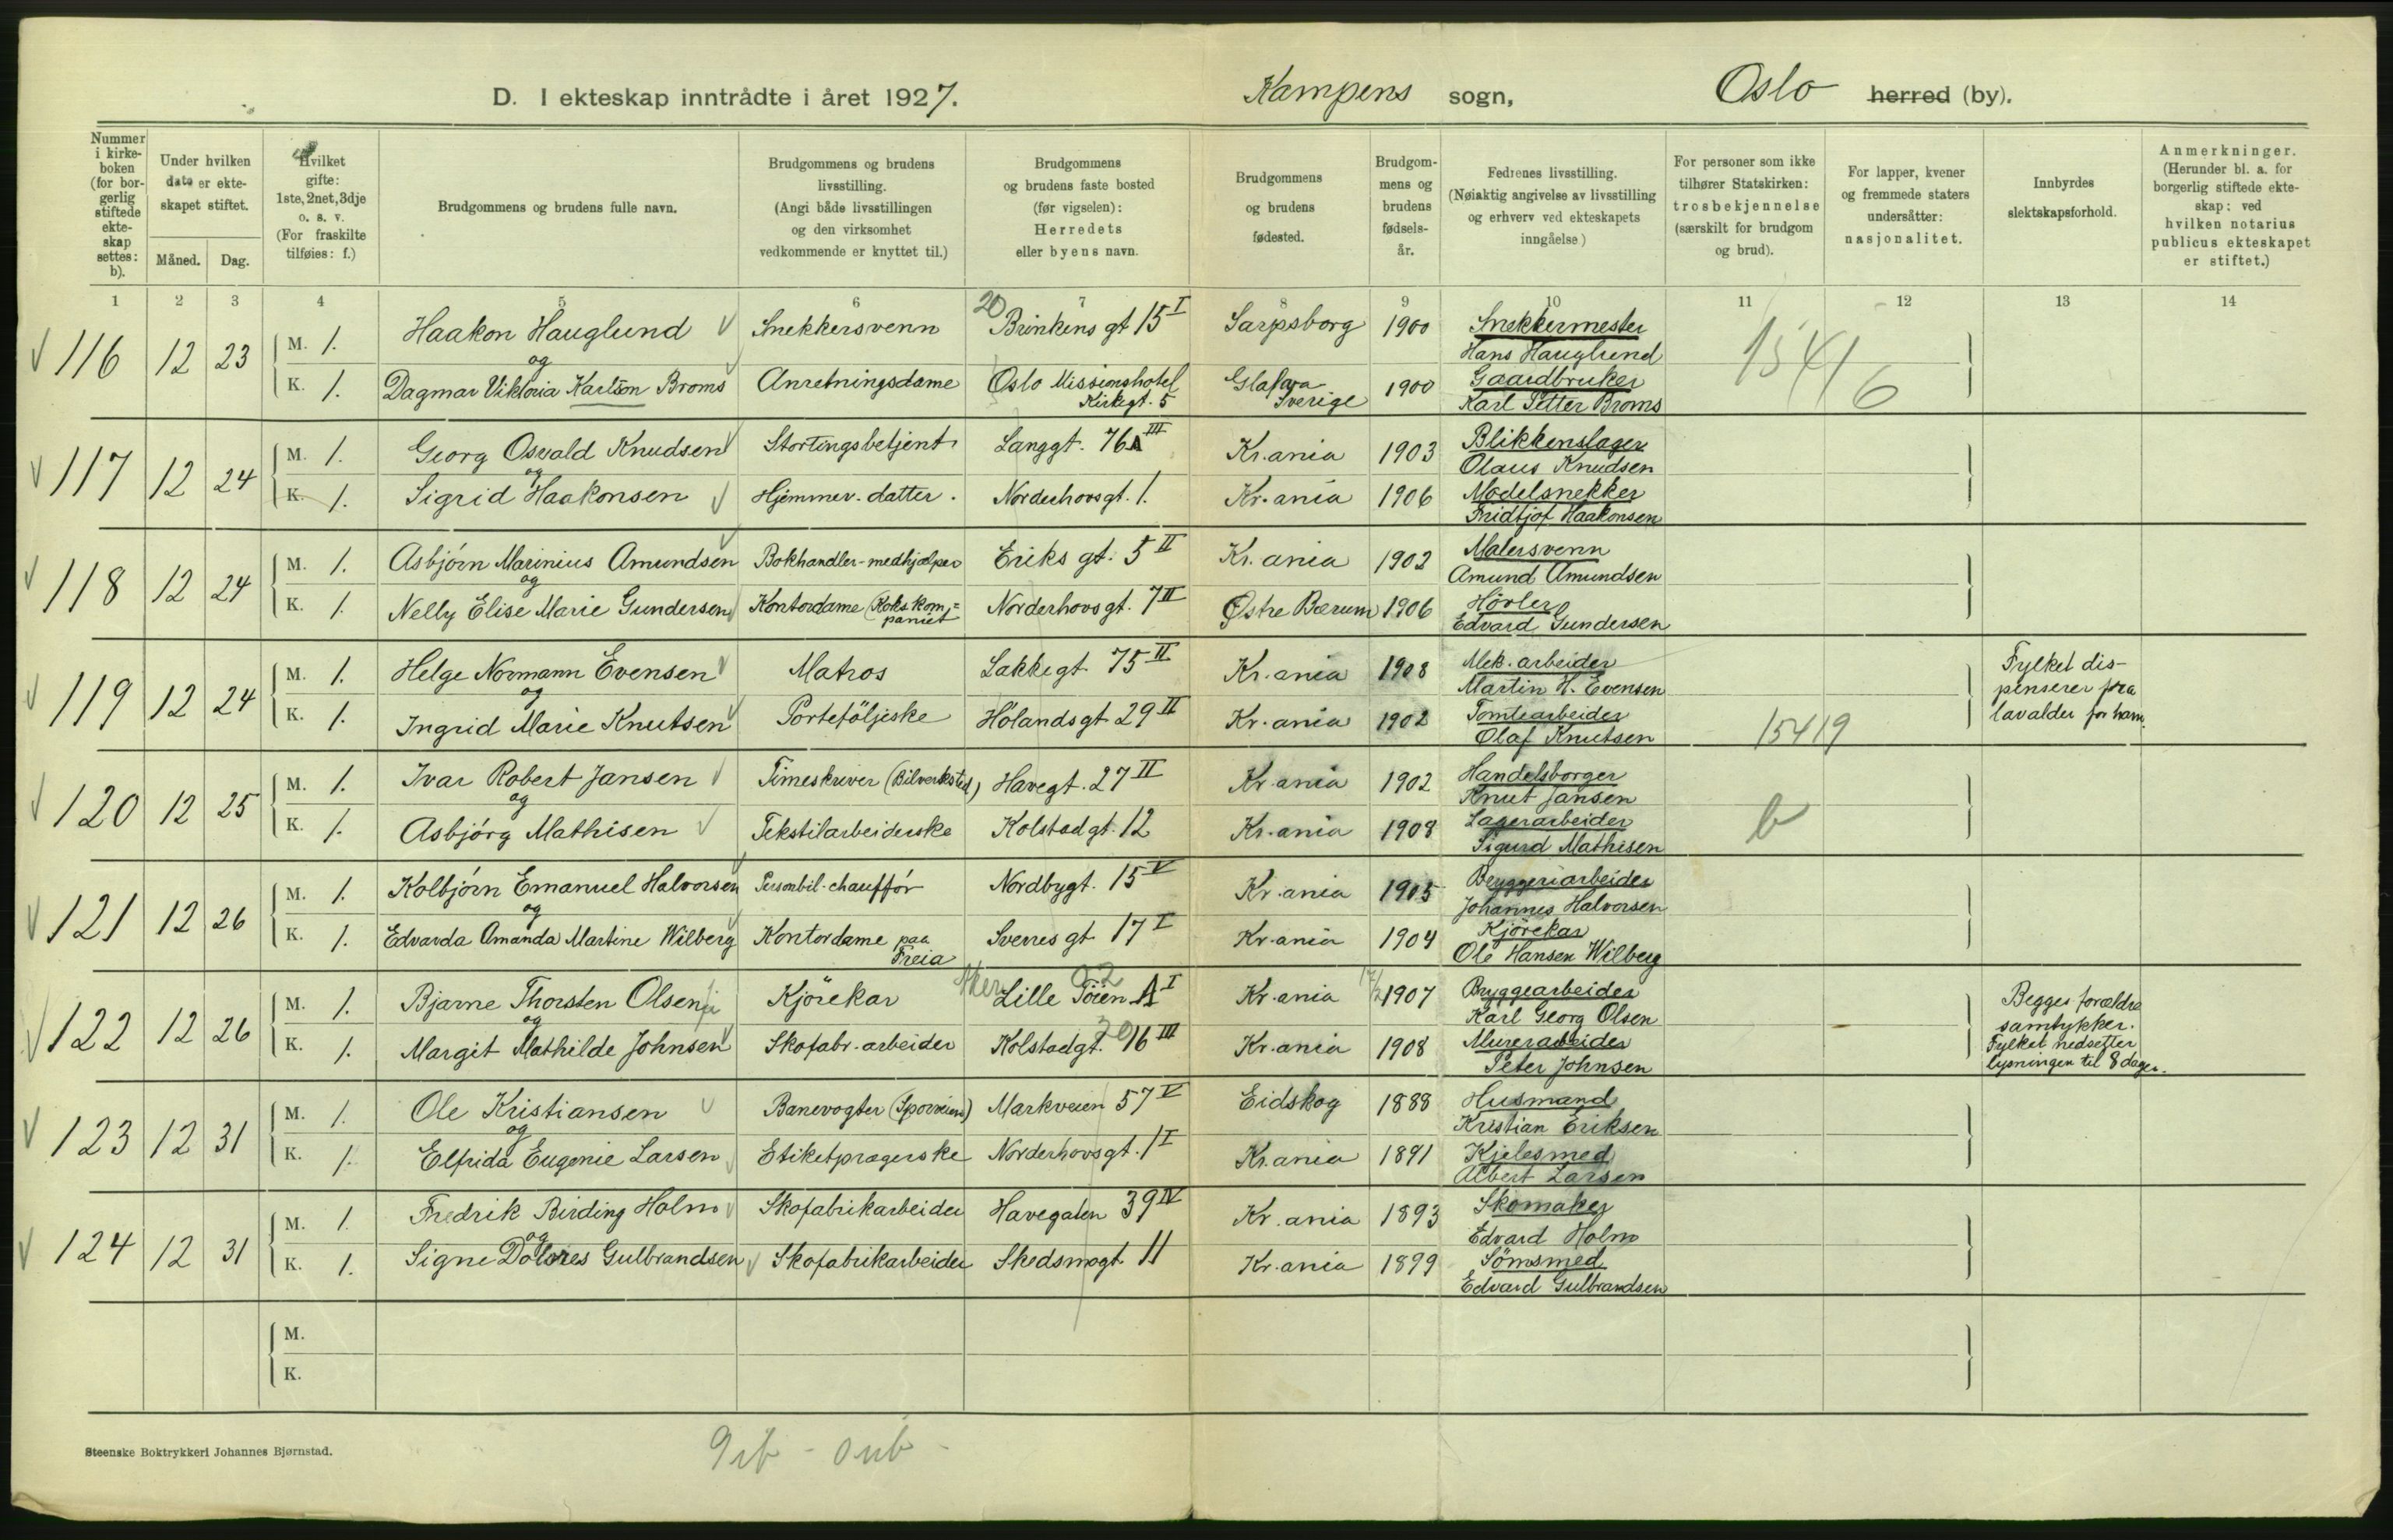 D. I ekteskap inntrådte i året 1927.
Kampens sogn,
Oslo herred (by).
Nummer i kirke-boken (for bor-gerlig stiftede ekte-skap settes: b).
Under hvilken dato er ekte-skapet stiftet.
Måned.
Dag.
Hvilket gifte: 1ste, 2net, 3dje o. s. v. (For fraskilte tilføies: f.)
Brudgommens og brudens fulle navn.
Brudgommens og brudens livsstilling. (Angi både livsstillingen og den virksomhet vedkommende er knyttet til.)
Brudgommens og brudens faste bosted (før vigselen): Herredets eller byens navn.
Brudgommens og brudens fødested.
Brudgom-mens og brudens fødsels-år.
Fedrenes livsstilling. (Nøiaktig angivelse av livsstilling og erhverv ved ekteskapets inngåelse)
For personer som ikke tilhører Statskirken: trosbekjennelse (særskilt for brudgom og brud).
For lapper, kvener og fremmede staters undersåtter: nasjonalitet.
Innbyrdes slektskapsforhold.
Anmerkninger. (Herunder bl. a. for borgerlig stiftede ekte-skap: ved hvilken notarius publicus ekteskapet er stiftet.)
1 2 3 4 5 6 7 8 9 10 11 12 13 14
116 12 23 M. 1. Haakon Hauglund Snekkersvenn 20 Brinkens gt 15 I Sarpsborg 1900 Snekkermester Hans Hauglund 1541
og
K. 1. Dagmar Viktoria Karlson Broms Anretningsdame Oslo Missionshotel Kirkegt. 5 Glafava Sverige 1900 Gaardbruker Karl Petter Broms 6
117 12 24 M. 1. Georg Osvald Knudsen Stortingsbetjent Langgt. 76 A III Kr.ania 1903 Blikkenslager Olaus Knudsen
og
K. 1. Sigrid Haakonsen Hjemmev. datter. Norderhovsgt. 1. Kr.ania 1906 Modelsnekker Fridtjof Haakonsen
118 12 24 M. 1. Asbjörn Marinius Amundsen Bokhandler-medhjælper Eriks gt. 5 II Kr.ania 1902 Malersvenn Amund Amundsen
og
K. 1. Nelly Elise Marie Gundersen Kontordame (Kokskom=paniet Norderhovsgt. 7 II Østre Bærum 1906 Hövler Edvard Gundersen
119 12 24 M. 1. Helge Normann Evensen Matros Lakkegt. 75 II Kr.ania 1908 Mek. arbeider Martin H. Evensen Fylket dis-penserer fra lavalder for ham.
og
K. 1. Ingrid Marie Knutsen Porteföljeske Hölandsgt 29 II Kr.ania 1902 Tomtearbeider Olaf Knutsen 15419
120 12 25 M. 1. Ivar Robert Jansen Timeskriver (Bilverksted) Havegt. 27 II Kr.ania 1902 Handelsborger Knut Jansen
og
K. 1. Asbjörg Mathisen Tekstilarbeiderske Kolstadgt. 12 Kr.ania 1908 Lagerarbeider Sigurd Mathisen b
121 12 26 M. 1. Kolbjörn Emanuel Halvorsen Personbil-chaufför Nordbygt. 15 V Kr.ania 1905 Bryggeriarbeider Johannes Halvorsen
og
K. 1. Edvarda Amanda Martine Wilberg Kontordame paa Freia Sverres gt 17 I Kr.ania 1904 Kjörekar Ole Hansen Wilberg
122 12 26 M. 1. Bjarne Thorsten Olsen Kjörekar Aker Lille Töien A I Kr.ania 1907 Bryggearbeider Karl Georg Olsen Begges forældre samtykker. Fylket nedsetter lysningen til 8 dager.
og
K. 1. Margit Mathilde Johnsen Skofabr.-arbeider Kolstadgt. 16 III Kr.ania 1908 Murerarbeider Peter Johnsen
123 12 31 M. 1. Ole Kristiansen Banevogter (Sporveiens) Markveien 57 V Eidskog 1888 Husmand Kristian Eriksen
og
K. 1. Elfrida Eugenie Larsen Etiketprægerske Norderhovsgt. 1 I Kr.ania 1891 Kjelesmed Albert Larsen
124 12 31 M. 1. Fredrik Birding Holm Skofabrikarbeider Havegaten 39 IV Kr.ania 1893 Skomaker Edvard Holm
og
K. 1. Signe Dolores Gulbrandsen Skofabrikarbeider Skedsmogt 11 Kr.ania 1899 Sömsmed Edvard Gulbrandsen
M.
K.
Steenske Boktrykkeri Johannes Bjørnstad.